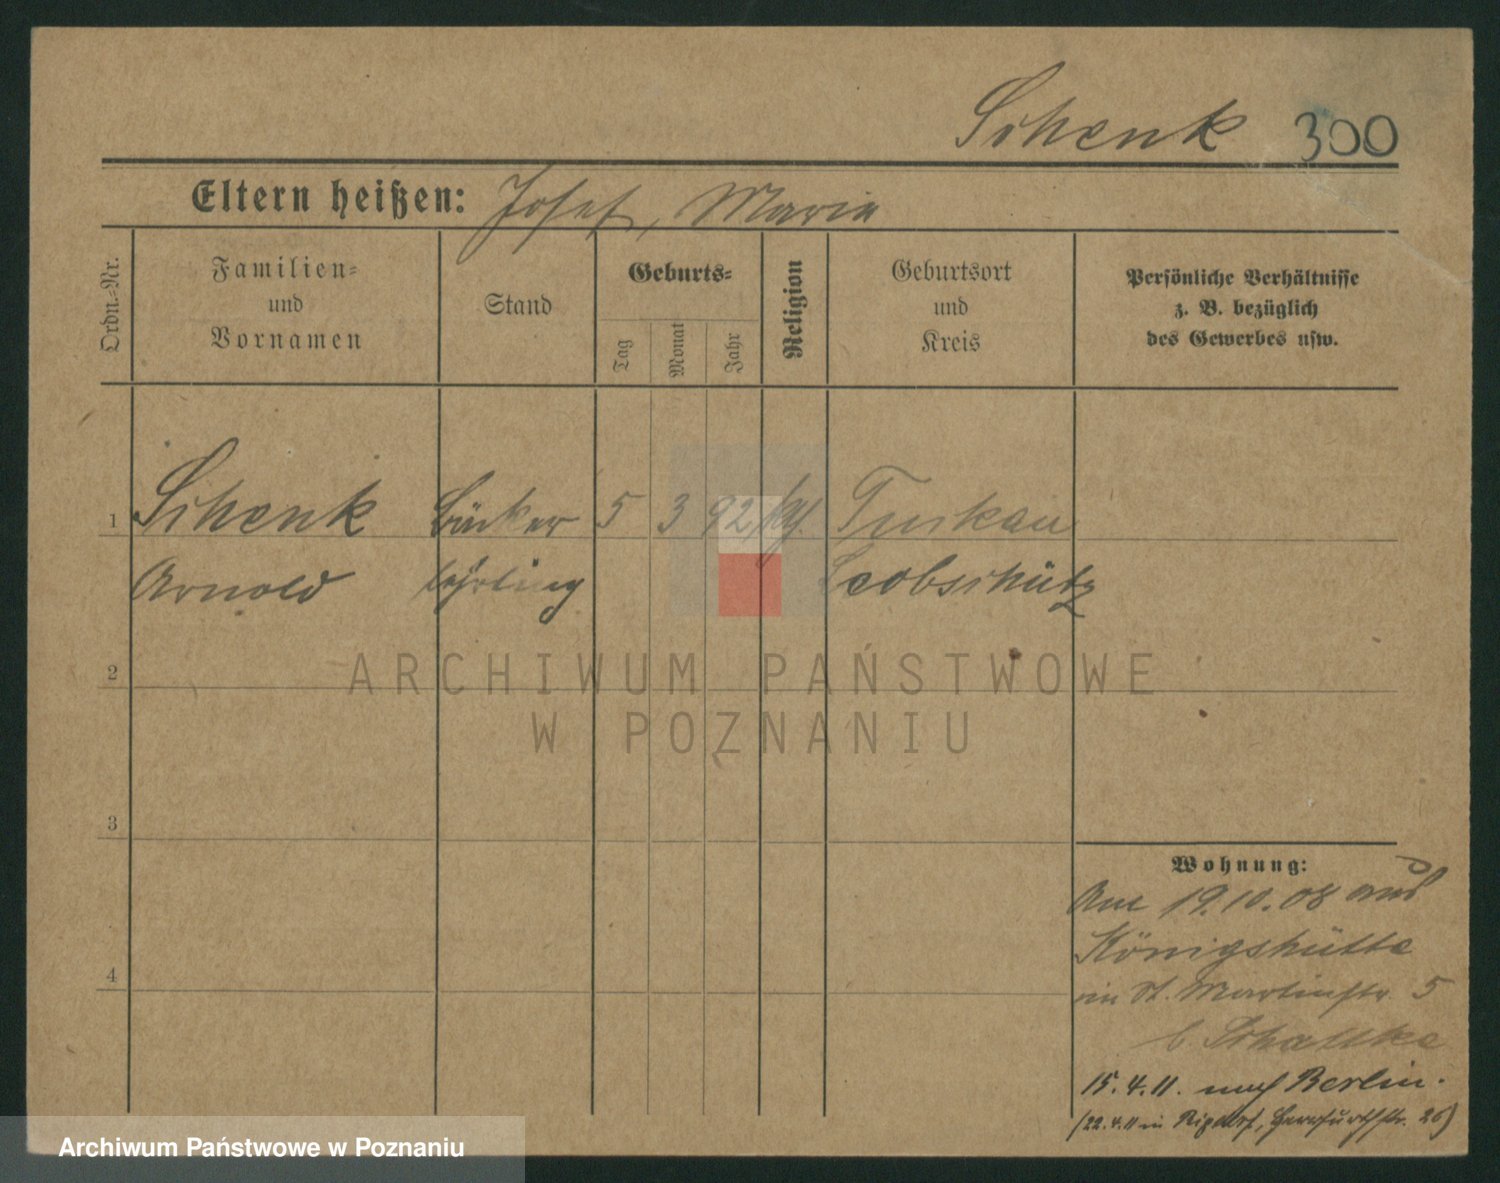 Schenk 300
Eltern heißen: Josef, Maria
Ordn.-Nr.
Familien-
und
Vornamen
Stand
Geburts-
Tag
Monat
Jahr
Religion
Geburtsort
und
Kreis
Persönliche Verhältnisse
z. B. bezüglich
des Gewerbes usw.
1 Schenk Bäcker 5 3 92 Tuskau
Arnold lehrling Leobschütz
2
ARCHIWUM PAŃSTWOWE
W POZNANIU
3
4
Wohnung:
Am 19.10.08 aus
Königshütte
in St. Martinstr. 5
b. Schattke
15.4.11. nach Berlin.
(22.4.11 in Rixdorf, 26)
Archiwum Państwowe w Poznaniu